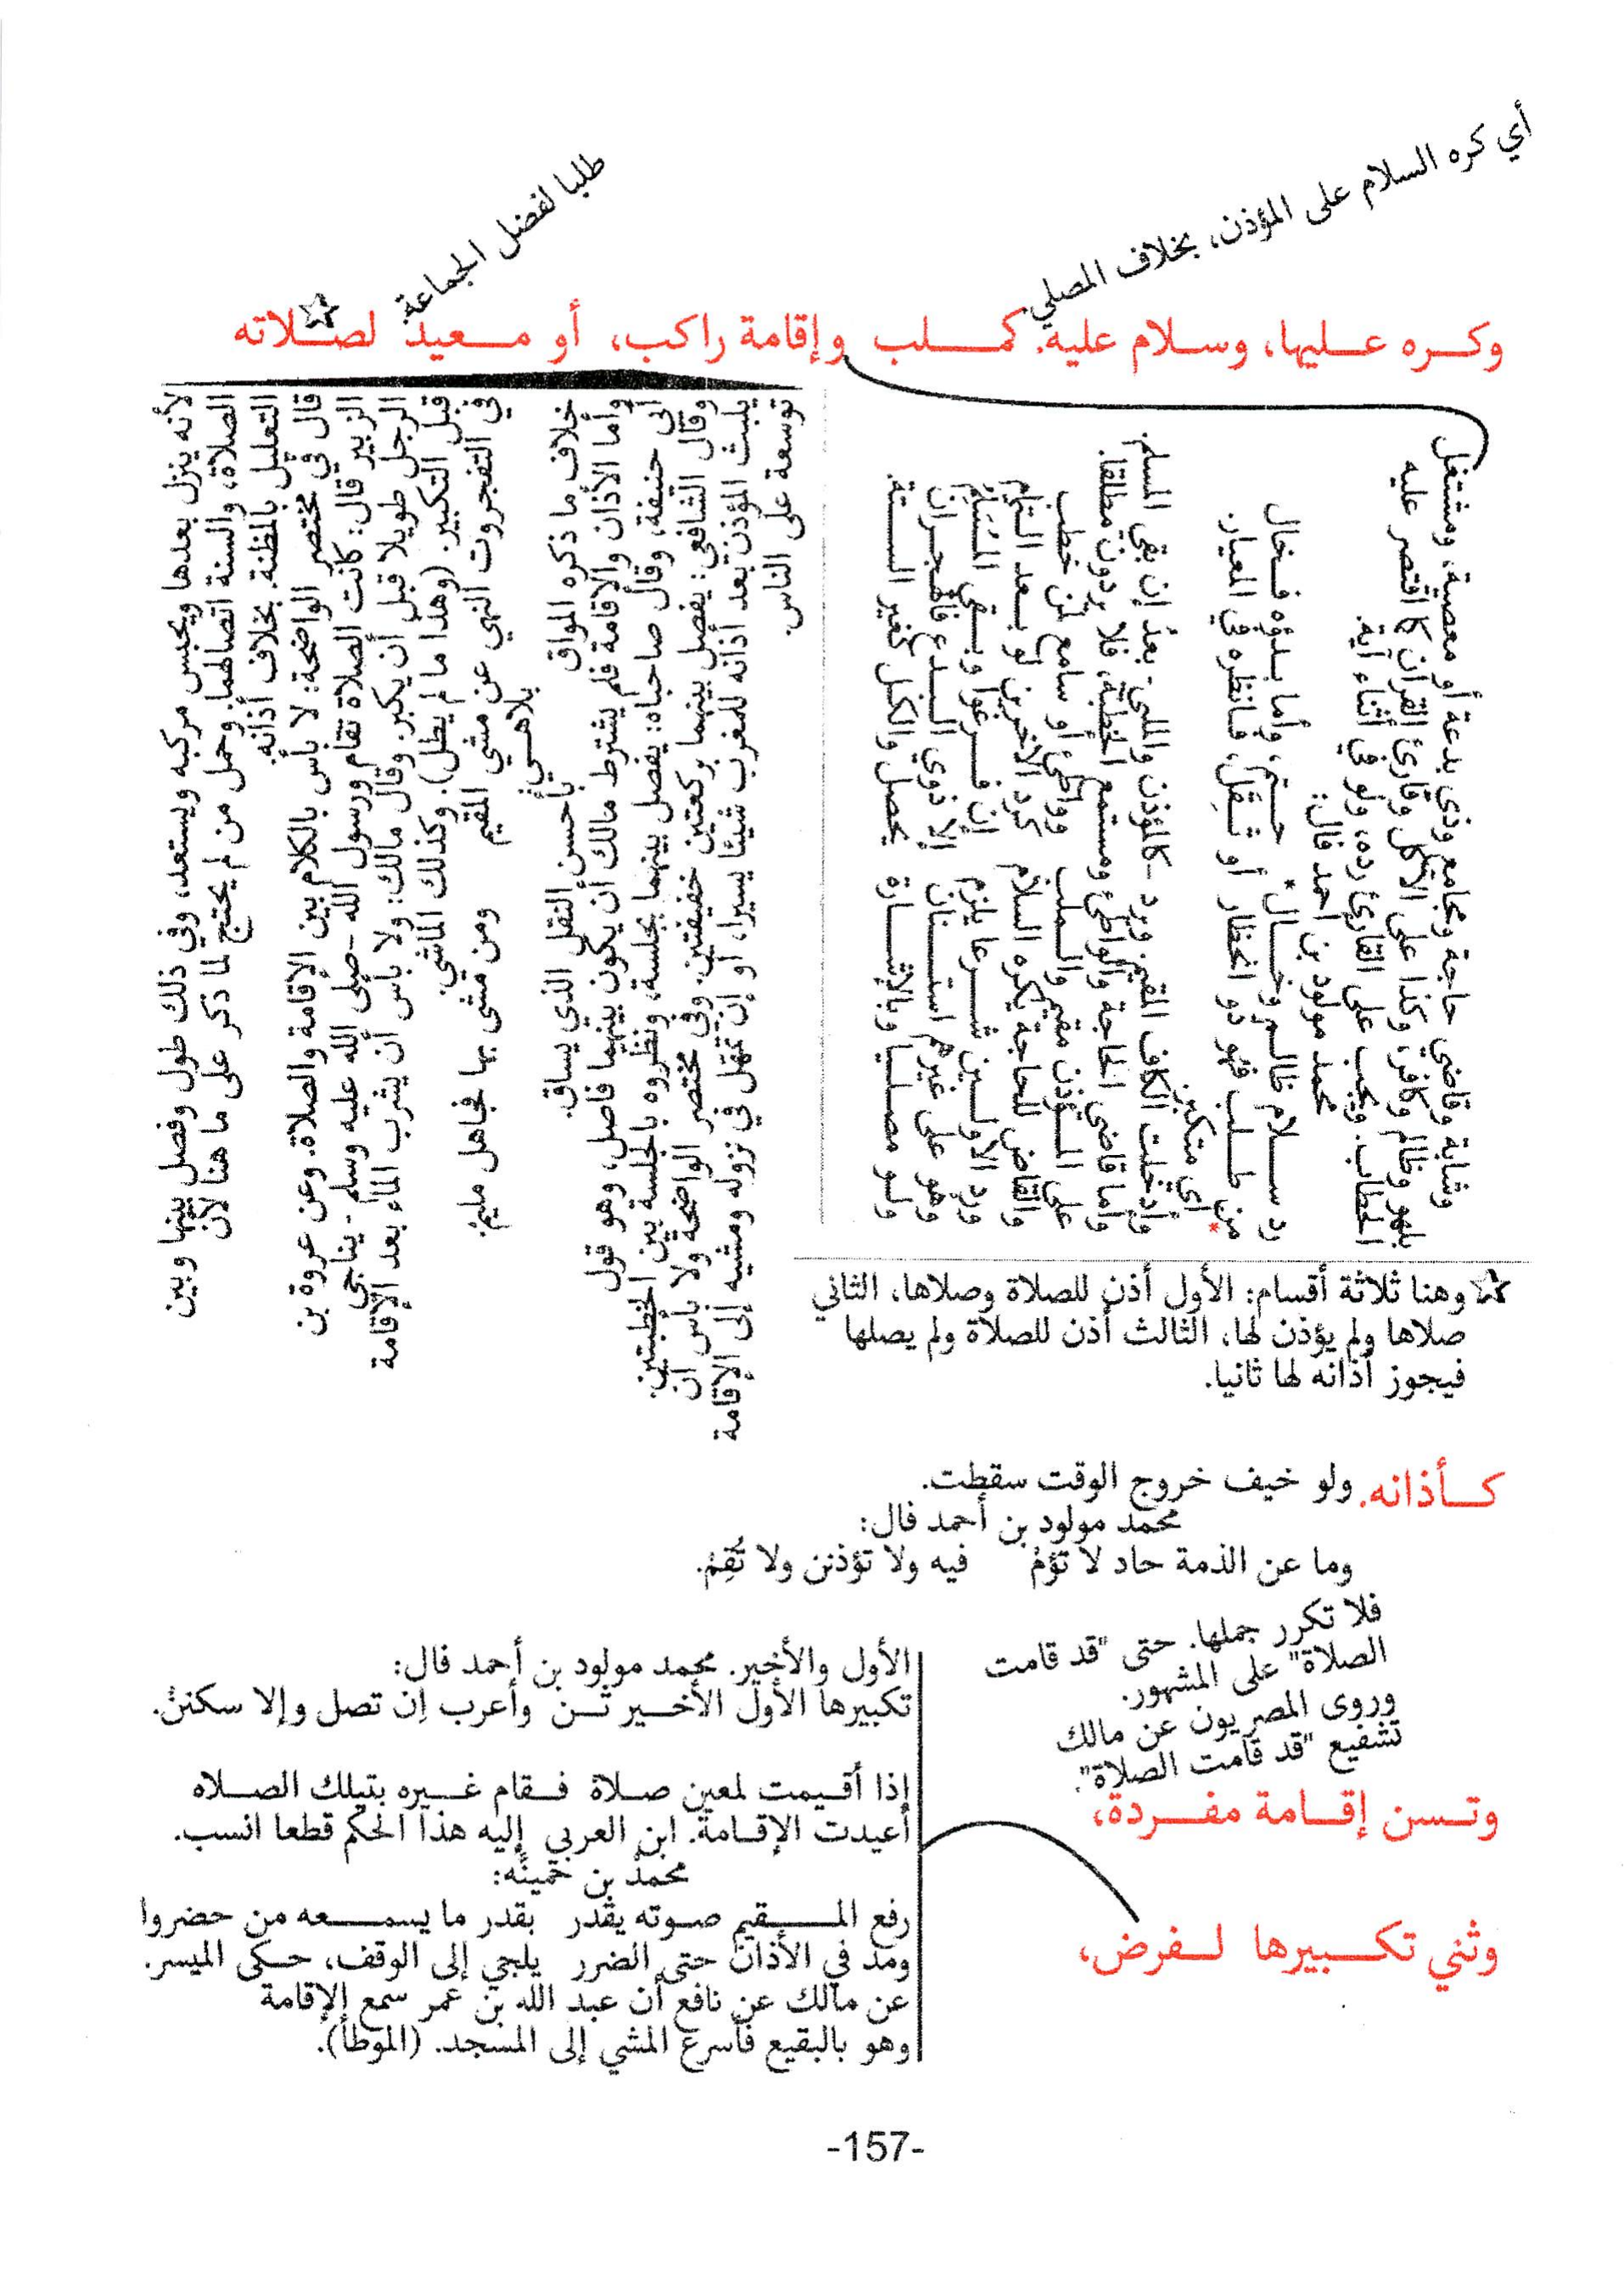 أي كره السلام على المؤذن، بخلاف المصلي.
طلبا لفضل الجماعة.
وكره عليها، وسلام عليه. كملب وإقامة راكب، أو معيد لصلاته
وشابة وقاضي حاجة ومجامع وذي بدعة أو معصية، ومشتغل
بلهو وظالم وكافر، وكذا على الآكل وقارئ القرآن كما اقتصر عليه
الحطاب. ويجب على القارئ رده، ولو في أثناء آية.
محمد مولود بن أحمد فال:
رد سلام ظالم وخال* حتم، وأما بدؤه فخال
من طلب فهو ذو انحظار أو ثقل، فانظره في المعيار.
* أي متكبر.
وأدخلت الكاف المقيم ويرد -كالمؤذن والملبي- بعد إن بقي المسلم.
وأما قاضي الحاجة والواطئ ومستمع الخطبة، فلا يردون مطلقا.
على المؤذن مقيم والملب وواطئ أو سامع لمن خطب
والقاض للحاجة يكره السلام كرد الآخرين لو بعد التمام
ورد الأولين شرعا يلزم إن فرغوا وبقي المسلم
وهو على غيرهم استنان إلا ذوي البدع فالهجران
ولو مصليا وبالإشارة يحصل والكل كغير الستة.
لأنه ينزل بعدها ويحبس مركبه ويستعد، وفي ذلك طول وفصل بينها وبين
الصلاة، والسنة اتصالهما. وحمل من لم يحتج لما ذكر على ما هنا لأن
التعليل بالمظنة. بخلاف أذانه.
قال في مختصر الواضحة: لا بأس بالكلام بين الإقامة والصلاة. وعن عروة بن
الزبير قال: كانت الصلاة تقام ورسول الله -صلى الله عليه وسلم- يناجي
الرجل طويلا قبل أن يكبر. وقال مالك: ولا بأس أن يشرب الماء بعد الإقامة
قبل التكبير. (وهذا ما لم يطل). وكذلك الماشي.
في التفجروت النهي عن مشي المقيم ومن مشى بها فجاهل مليم.
بلاهي
خلاف ما ذكره المواق بأحسن النقل الذي يساق.
وأما الأذان والإقامة فلم يشترط مالك أن يكون بينهما فاصل، وهو قول
أبي حنيفة، وقال صاحباه: يفصل بينهما بجلسة، ونظروه بالجلسة بين الخطبتين.
وقال الشافعي: يفصل بينهما بركعتين خفيفتين. وفي مختصر الواضحة ولا بأس أن
يلبث المؤذن بعد أذانه للمغرب شيئا يسيرا، أو إن تمهل في نزوله ومشيه إلى الإقامة
توسعة على الناس.
وهنا ثلاثة أقسام: الأول أذن للصلاة وصلاها، الثاني
صلاها ولم يؤذن لها، الثالث أذن للصلاة ولم يصلها
فيجوز أذانه لها ثانيا.
كأذانه. ولو خيف خروج الوقت سقطت.
محمد مولود بن أحمد فال:
وما عن الذمة حاد لا تؤم فيه ولا تؤذنن ولا تقم.
فلا تكرر جملها. حتى "قد قامت
الصلاة" على المشهور.
وروى المصريون عن مالك
تشفيع "قد قامت الصلاة".
وتسن إقامة مفردة،
الأول والأخير. محمد مولود بن أحمد فال:
تكبيرها الأول الأخير ثن وأعرب إن تصل وإلا سكنن.
إذا أقيمت لمعين صلاة فقام غيره بتيلك الصلاه
أعيدت الإقامة. ابن العربي إليه هذا الحكم قطعا انسب.
محمد بن حمينه:
رفع المقيم صوته يقدر بقدر ما يسمعه من حضروا
ومد في الأذان حتى الضرر يلجي إلى الوقف، حكى الميسر.
عن مالك عن نافع أن عبد الله بن عمر سمع الإقامة
وهو بالبقيع فأسرع المشي إلى المسجد. (الموطأ).
وثني تكبيرها لفرض،
-157-